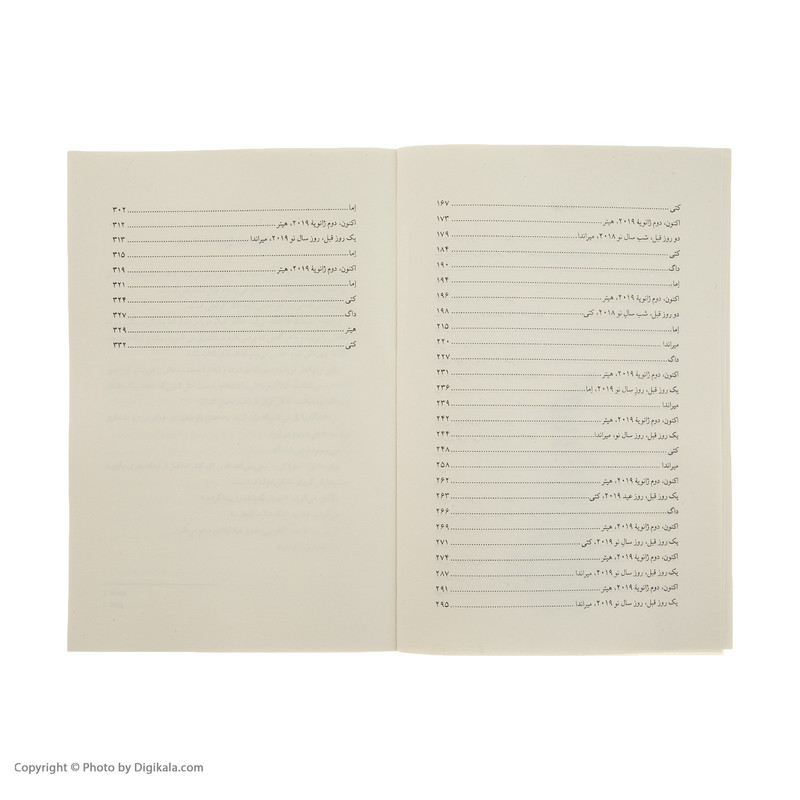 کتی ۱۶۷
اکنون، دوم ژانویهٔ ۲۰۱۹، هیتر ۱۷۳
دو روز قبل، شب سال نو ۲۰۱۸، میراندا ۱۷۹
کتی ۱۸۴
داگ ۱۹۰
اِما ۱۹۴
اکنون، دوم ژانویهٔ ۲۰۱۹، هیتر ۱۹۶
دو روز قبل، شب سال نو ۲۰۱۸، کتی ۱۹۸
اِما ۲۱۵
میراندا ۲۲۰
داگ ۲۲۷
اکنون، دوم ژانویهٔ ۲۰۱۹، هیتر ۲۳۱
یک روز قبل، روز سال نو ۲۰۱۹، اِما ۲۳۶
میراندا ۲۳۹
اکنون، دوم ژانویهٔ ۲۰۱۹، هیتر ۲۴۲
یک روز قبل، روز سال نو، میراندا ۲۴۴
کتی ۲۴۸
میراندا ۲۵۸
اکنون، دوم ژانویهٔ ۲۰۱۹، هیتر ۲۶۲
یک روز قبل، روز عید ۲۰۱۹، کتی ۲۶۳
داگ ۲۶۶
اکنون، دوم ژانویهٔ ۲۰۱۹، هیتر ۲۶۹
یک روز قبل، روز سال نو ۲۰۱۹، کتی ۲۷۱
اکنون، دوم ژانویهٔ ۲۰۱۹، هیتر ۲۷۴
یک روز قبل، روز سال نو ۲۰۱۹، میراندا ۲۸۷
اکنون، دوم ژانویهٔ ۲۰۱۹، هیتر ۲۹۱
یک روز قبل، روز سال نو ۲۰۱۹، میراندا ۲۹۵
اِما ۳۰۲
اکنون، دوم ژانویهٔ ۲۰۱۹، هیتر ۳۱۲
یک روز قبل، روز سال نو ۲۰۱۹، میراندا ۳۱۳
اِما ۳۱۵
اکنون، دوم ژانویهٔ ۲۰۱۹، هیتر ۳۱۹
اِما ۳۲۱
کتی ۳۲۴
داگ ۳۲۷
هیتر ۳۲۹
کتی ۳۳۲
Copyright © Photo by Digikala.com